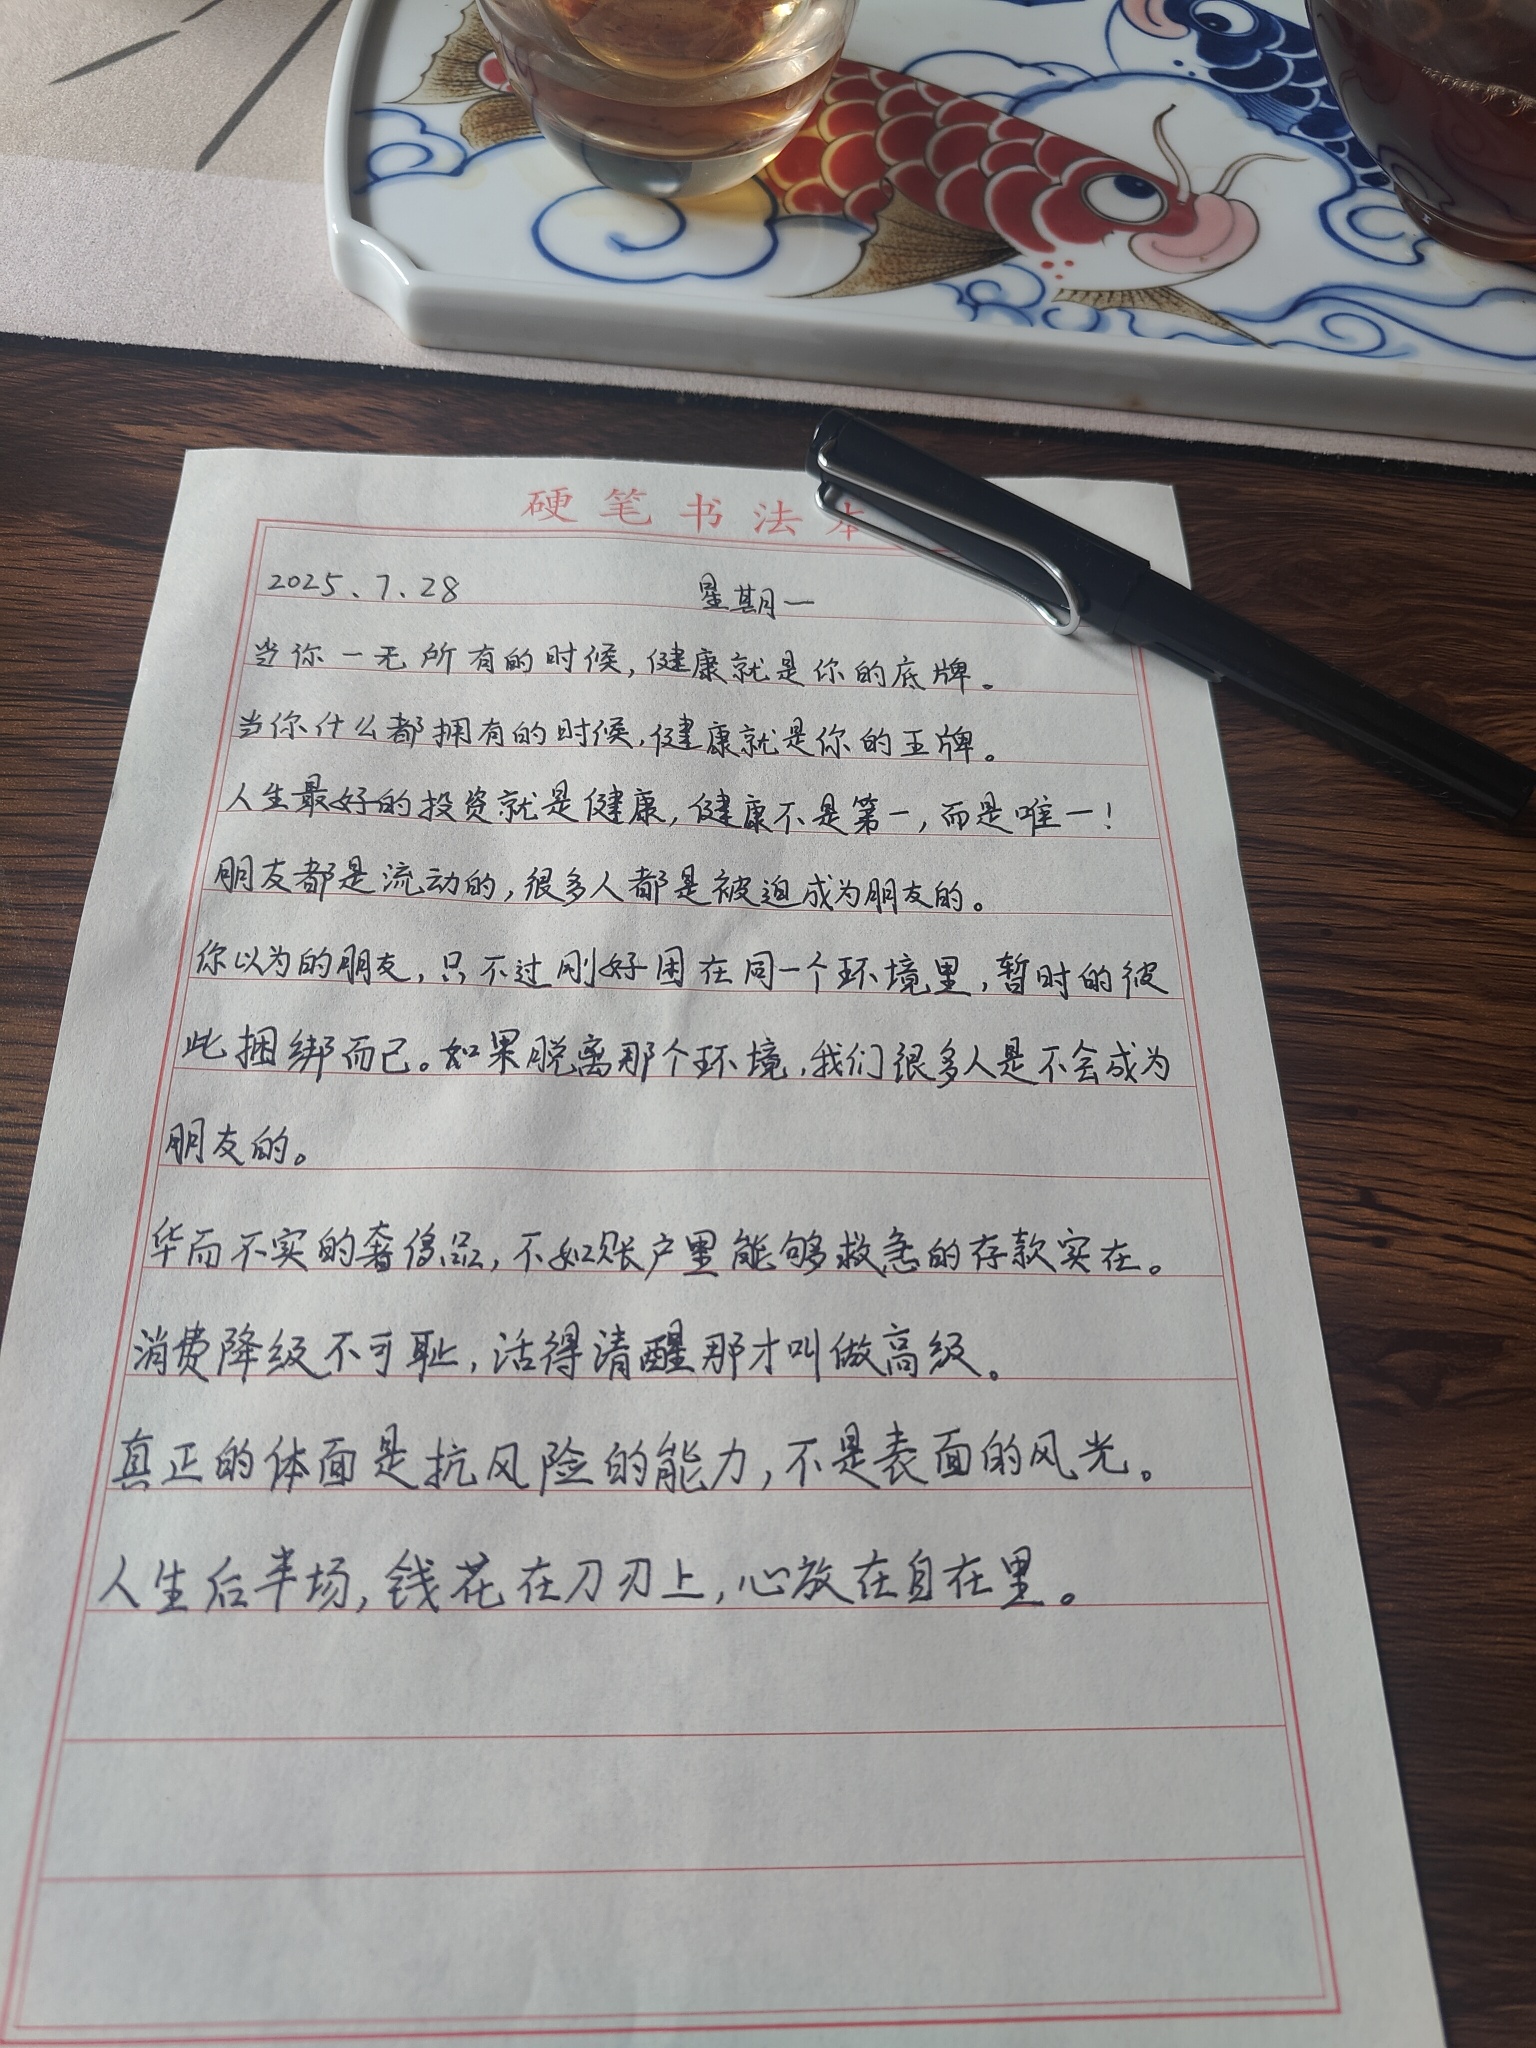 硬笔书法本
2025.7.28 星期一
当你一无所有的时候,健康就是你的底牌。
当你什么都拥有的时候,健康就是你的王牌。
人生最好的投资就是健康,健康不是第一,而是唯一!
朋友都是流动的,很多人都是被迫成为朋友的。
你以为的朋友,只不过刚好困在同一个环境里,暂时的彼
此捆绑而已。如果脱离那个环境,我们很多人是不会成为
朋友的。
华而不实的奢侈品,不如账户里能够救急的存款实在。
消费降级不可耻,活得清醒那才叫做高级。
真正的体面是抗风险的能力,不是表面的风光。
人生后半场,钱花在刀刃上,心放在自在里。